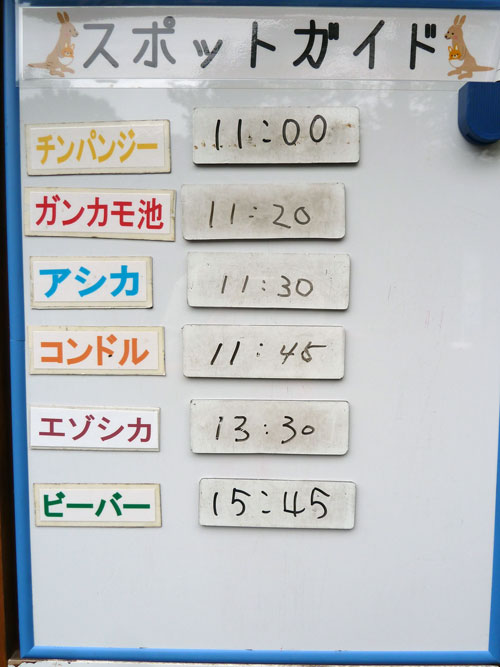 スポットガイド
チンパンジー 11:00
ガンカモ池 11:20
アシカ 11:30
コンドル 11:45
エゾシカ 13:30
ビーバー 15:45